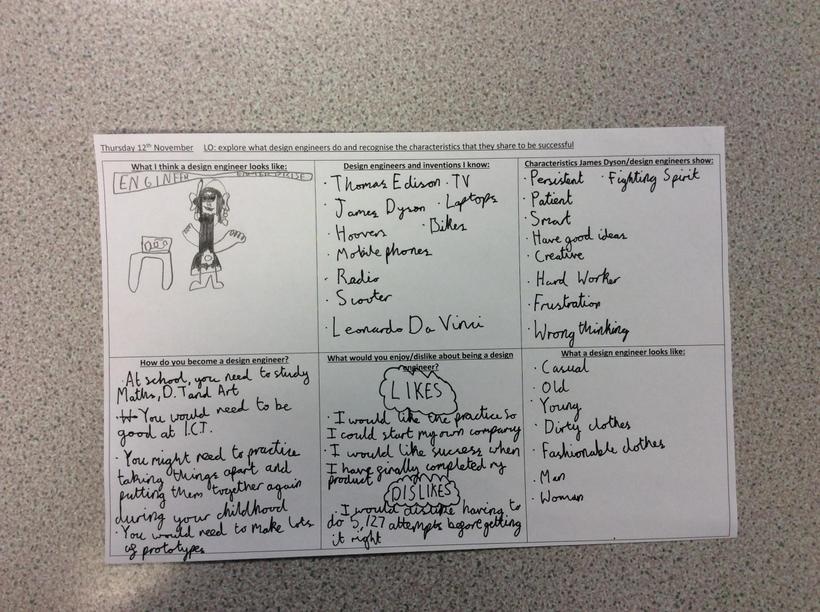 Thursday 12th November LO: explore what design engineers do and recognise the characteristics that they share to be successful
What I think a design engineer looks like:
ENGINEER
Design engineers and inventions I know:
· Thomas Edison · TV
· James Dyson · Laptops
· Hoovers · Bikes
· Mobile phones
· Radio
· Scooter
· Leonardo Da Vinci
Characteristics James Dyson/design engineers show:
· Persistent · Fighting Spirit
· Patient
· Smart
· Have good ideas
· Creative
· Hard Worker
· Frustration
· Wrong thinking
How do you become a design engineer?
· At school, you need to study
Maths, D.T and Art
· You would need to be
good at I.C.T.
· You might need to practise
taking things apart and
putting them together again
during your childhood
· You would need to make lots
of prototypes
What would you enjoy/dislike about being a design
engineer?
LIKES
· I would like the practice so
I could start my own company
· I would like success when
I have finally completed my
product
DISLIKES
· I would dislike having to
do 5,127 attempts before getting
it right
What a design engineer looks like:
· Casual
· Old
· Young
· Dirty clothes
· Fashionable clothes
· Men
· Woman